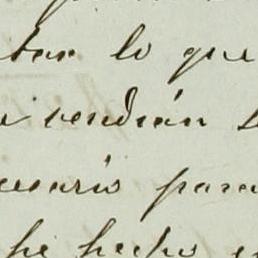 ber lo que
vendrán
esario para
he hecho